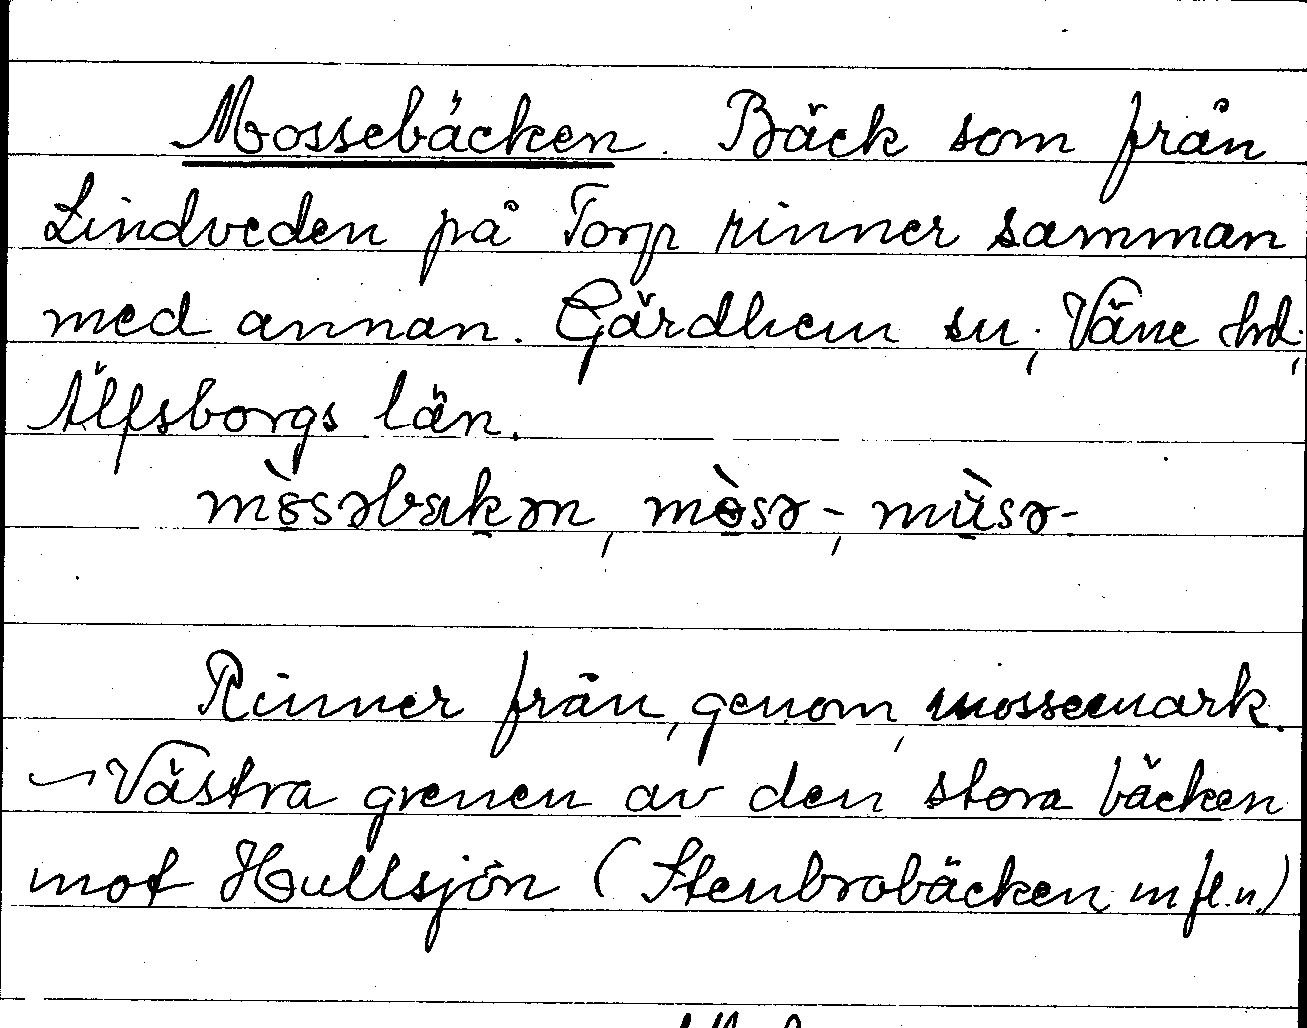 Mossebäcken. Bäck som från
Lindveden på Torp rinner samman
med annan. Gärdhem sn; Väne hd;
Älfsborgs län.
mòsəbakən, mòsə-; mùsə-
Rinner från, genom, mossemark.
Västra grenen av den stora bäcken
mot Hullsjön (Stenbrobäcken m fl.n.)